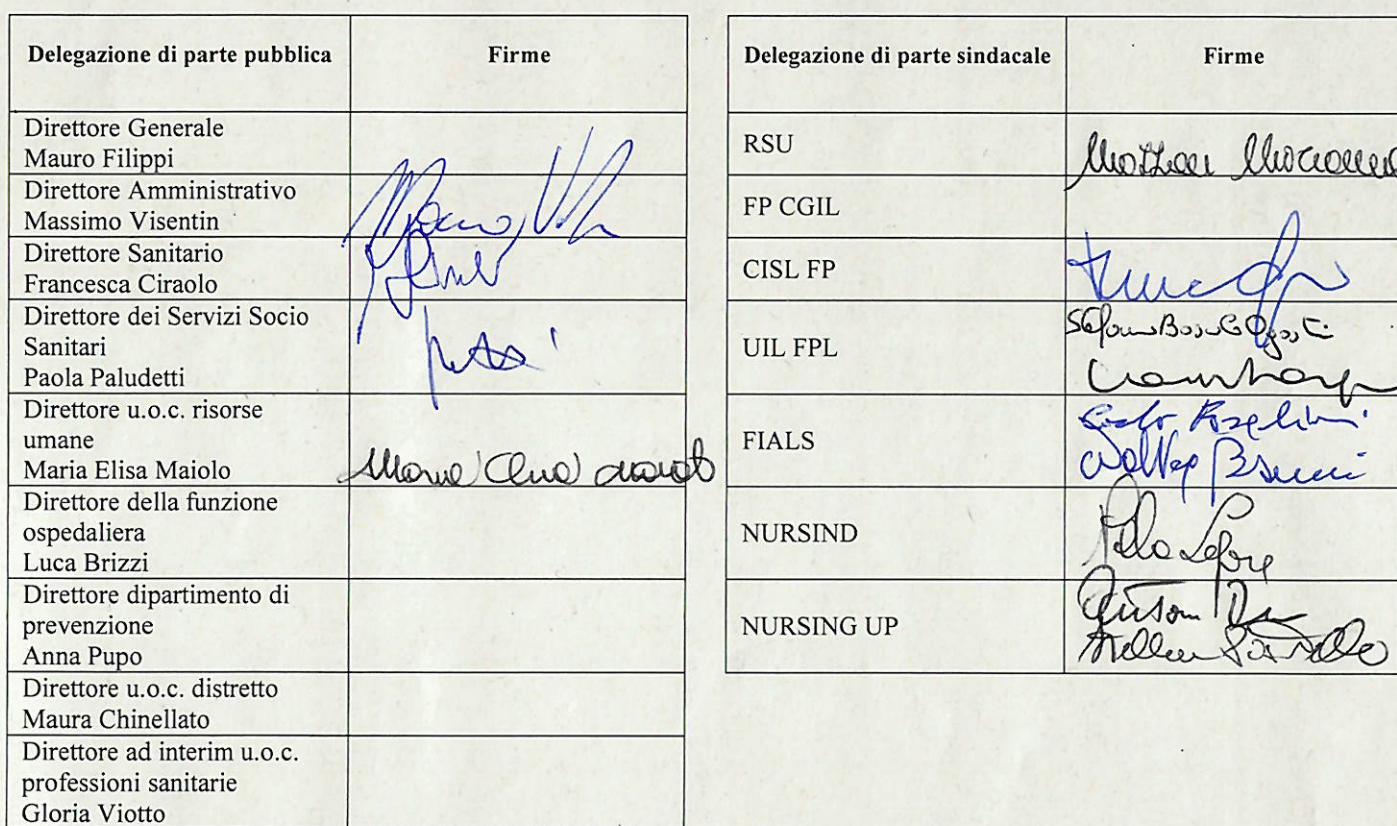 Delegazione di parte pubblica
Firme
Direttore Generale
Mauro Filippi
Direttore Amministrativo
Massimo Visentin
Direttore Sanitario
Francesca Ciraolo
Direttore dei Servizi Socio
Sanitari
Paola Paludetti
Direttore u.o.c. risorse
umane
Maria Elisa Maiolo
Direttore della funzione
ospedaliera
Luca Brizzi
Direttore dipartimento di
prevenzione
Anna Pupo
Direttore u.o.c. distretto
Maura Chinellato
Direttore ad interim u.o.c.
professioni sanitarie
Gloria Viotto
Delegazione di parte sindacale
Firme
RSU
FP CGIL
CISL FP
UIL FPL
FIALS
NURSIND
NURSING UP